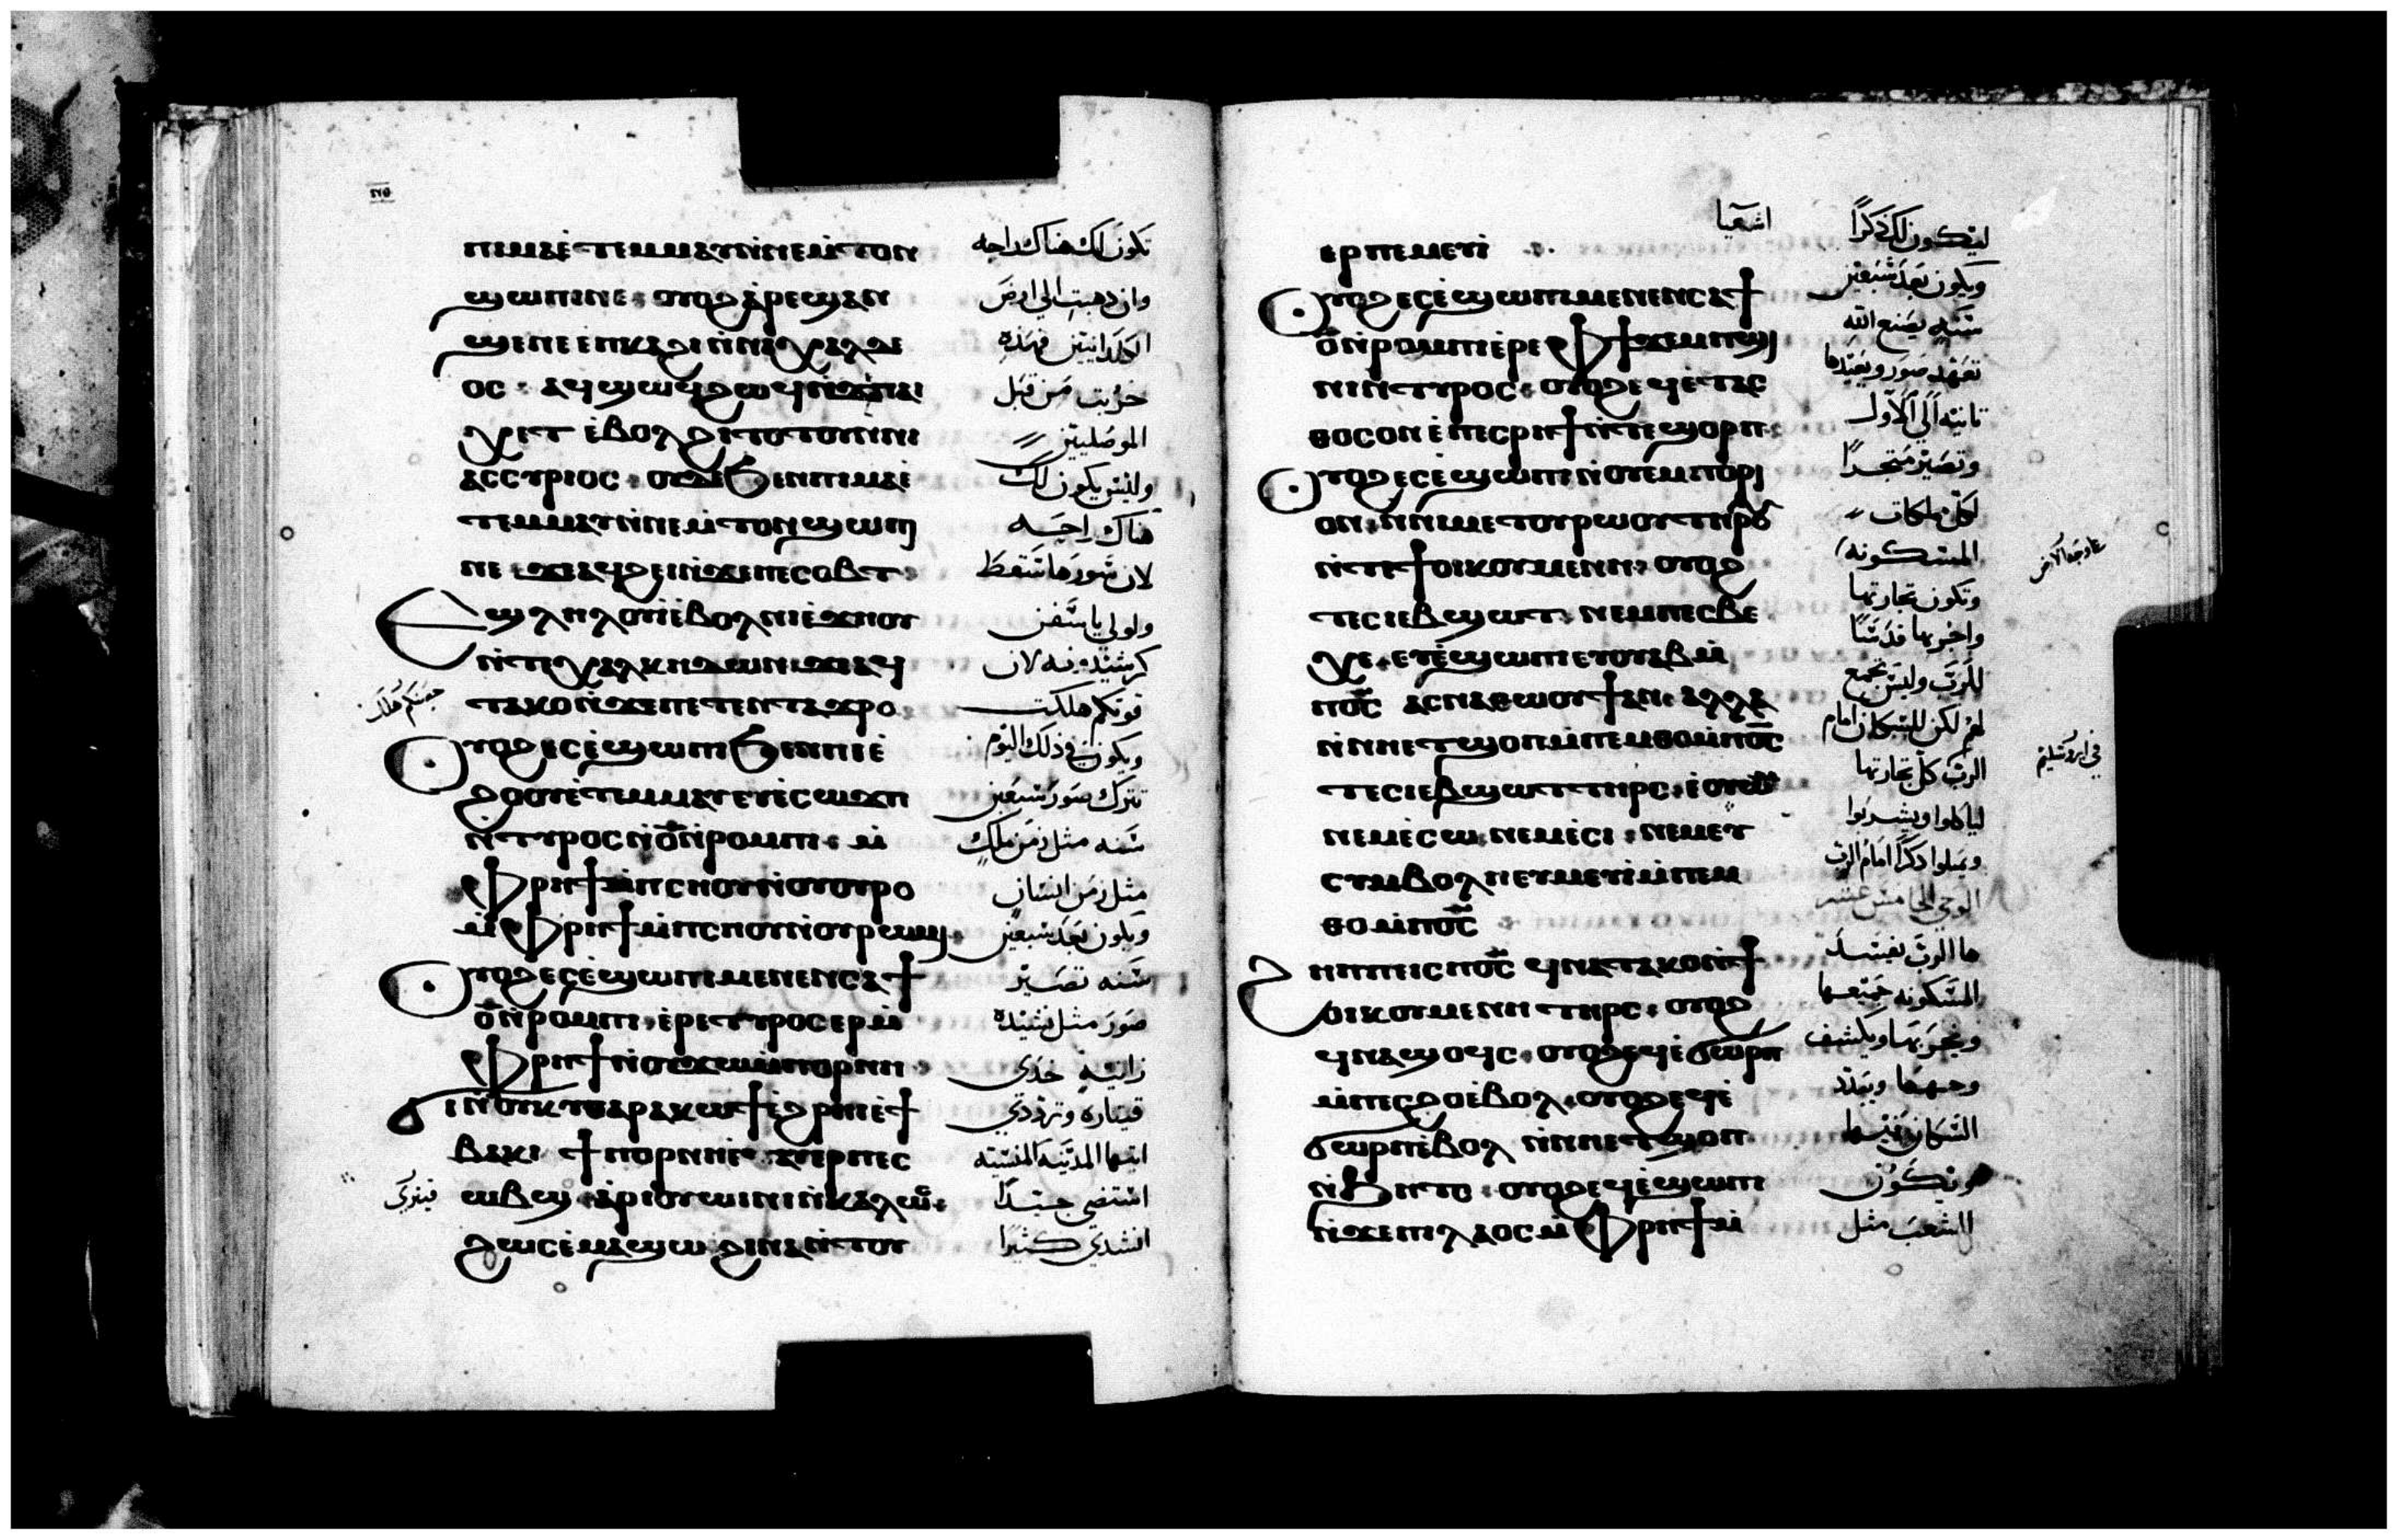 ⲙⲙⲁⲩ ⲛ̀ⲛⲉⲙ̀ⲧⲟⲛ
ϣⲱⲡⲓ ⲛⲉ · ⲟⲩⲟϩ ⲁ̀ⲣⲉϣⲁⲛ
ϣⲉ ⲛⲉ ⲉ̀ⲡⲕⲁϩⲓ ⲛ̀ⲛⲓⲭⲁⲗⲇⲉ
ⲟⲥ · ⲁϥϣⲱϥ ϩⲱϥ
ⲉ̀ⲃⲟⲗϩⲓⲧⲟⲧⲟⲩ ⲛ̀ⲛⲓ
ⲁⲥⲥⲩⲣⲓⲟⲥ · ⲟⲩⲇⲉ ϧⲉⲛ ⲡⲓⲙⲁ ⲉ̀
ⲧⲉⲙⲙⲁⲩ ⲛ̀ⲛⲉⲙ̀ⲧⲟⲛ ϣⲱⲡⲓ
ⲛⲉ ϫⲉ ⲁϥϩⲉⲓ ⲛ̀ϫⲉ ⲡⲉⲥⲟⲃⲧ ·
ⲉϣⲗⲏⲗⲟⲩⲓ̀ ⲉ̀ⲃⲟⲗ ⲛⲓⲉ̀ϫⲏⲟⲩ
ⲛ̀ⲧⲉ ⲭⲁⲗⲕⲏⲇⲱⲛ ϫⲉ ⲁϥ
ⲧⲁⲕⲟ ⲛ̀ϫⲉ ⲡⲉⲧⲉⲛⲧⲁϫⲣⲟ
ⲟⲩⲟϩ ⲉⲥⲉ̀ϣⲱⲡⲓ ϧⲉⲛ ⲡⲓⲉ̀
ϩⲟⲟⲩ ⲉ̀ⲧⲉⲙⲙⲁⲩ ⲉⲩⲉ̀ⲥⲱϫⲡ
ⲛ̀ⲧⲩⲣⲟⲥ ⲛ̀ⲟ̅ ⲛ̀ⲣⲟⲙⲡⲓ · ⲙ̀
ⲫⲣⲏϯ ⲙ̀ⲡⲥⲏⲟⲩ ⲛ̀ⲟⲩⲟⲩⲣⲟ
ⲙ̀ⲫⲣⲏϯ ⲙ̀ⲡⲥⲏⲟⲩ ⲛ̀ⲟⲩⲣⲱⲙⲓ ·
ⲟⲩⲟϩ ⲉⲥⲉ̀ϣⲱⲡⲓ ⲙⲉⲛⲉⲛⲥⲁ ϯ
ⲟ̅ ⲛ̀ⲣⲟⲙⲡⲓ · ⲉ̀ⲣⲉ ⲧⲩⲣⲟⲥ ⲉⲣ ⲙ̀
ⲫⲣⲏϯ ⲛ̀ⲟⲩϫⲱ ⲙ̀ⲡⲟⲣⲛⲏ ·
ϭⲓ ⲛ̀ⲟⲩⲕⲩⲑⲁⲣⲁ ⲕⲱϯ ⲉ̀ϩⲣⲏⲓ ⲉ̀ϯ
ⲃⲁⲕⲓ ϯⲡⲟⲣⲛⲏ ⲉⲣⲡⲉⲥ
ⲱⲃϣ · ⲁ̀ⲣⲓⲟⲩⲱⲓⲛⲓ ⲛ̀ⲕⲁⲗⲱⲥ
ϩⲱⲥ ⲉ̀ⲙⲁϣⲱ ϩⲓⲛⲁ ⲛ̀ⲧⲟⲩ
تكون لك هناك راحه
وان ذهبت الي ارض
الكلدانيين فهذه
خربت من قبل
الموصليين
وليس يكون لك
هناك راحه
لان سورها سقط
ولولي يا سفن
كرشيدونيه لان
قوتكم هلكت
ويكون في ذلك اليوم
تترك صور سبعين
سنه مثل زمن ملك
مثل زمن انسان
ويكون بعد سبعين
سنه تصير
صور مثل نشيده
زانيه خذي
قيتاره وترددي
ايتها المدينه المنسيه
انشدي كثيرا
اشعيا
ⲉⲣⲡⲉⲙⲉⲩⲓ̀
ⲟⲩⲟϩ ⲉⲥⲉ̀ϣⲱⲡⲓ ⲙⲉⲛⲉⲛⲥⲁ ϯ
ⲟ̅ ⲛ̀ⲣⲟⲙⲡⲓ ⲉ̀ⲣⲉ ⲫϯ ϫⲉⲙⲡϣⲓ
ⲛⲓ ⲛ̀ⲧⲩⲣⲟⲥ · ⲟⲩⲟϩ ⲉϥⲉ̀ⲧⲁⲥ
ⲑⲟⲥ ⲟⲛ ⲉ̀ⲡⲉⲥⲣⲏϯ ⲛ̀ⲧⲉ ϣⲟⲣⲡ ·
ⲟⲩⲟϩ ⲉⲥⲉ̀ϣⲱⲡⲓ ⲛ̀ⲟⲩⲉⲙⲡⲟⲣⲓ
ⲟⲛ · ⲛ̀ⲛⲓⲙⲉⲧⲟⲩⲣⲱⲟⲩ ⲧⲏⲣⲟⲩ
ⲛ̀ⲧⲉ ϯⲟⲓⲕⲟⲩⲙⲉⲛⲏ · ⲟⲩⲟϩ
ⲧⲉⲥⲓⲉⲃϣⲱⲧ · ⲛⲉⲙ ⲡⲉⲥⲃⲉ
ⲭⲉ · ⲉⲩⲉ̀ϣⲱⲡⲓ ⲉⲩⲟⲩⲁⲃ ⲙ̀
ⲡⲟ̅ⲥ̅ ⲁⲥⲛⲁⲑⲱⲟⲩϯ ⲁⲛ · ⲁⲗⲗⲁ
ⲛ̀ⲛⲏ ⲉⲧϣⲟⲡ ⲙ̀ⲡⲉⲙⲑⲟ ⲙ̀ⲡⲟ̅ⲥ̅
ⲧⲉⲥⲓⲉⲃϣⲱⲧ ⲧⲏⲣⲥ · ⲉ̀ⲟⲩⲱⲙ
ⲛⲉⲙ ⲉ̀ⲥⲱ · ⲛⲉⲙ ⲉ̀ⲥⲓ · ⲛⲉⲙ ⲉⲩ
ⲥⲩⲙⲃⲟⲗⲏ ⲉⲩⲙⲉⲩⲓ ⲙ̀ⲡⲉⲙ
ⲑⲟ ⲙ̀ⲡⲟ̅ⲥ̅
ϩⲏⲡⲡⲉ ⲓⲥ ⲡⲟ̅ⲥ̅ ϥⲛⲁⲧⲁⲕⲟ ⲛ̀ϯ
ⲟⲓⲕⲟⲩⲙⲉⲛⲏ ⲧⲏⲣⲥ · ⲟⲩⲟϩ
ϥⲛⲁϣⲟϥⲥ · ⲟⲩⲟϩ ⲉϥⲉ̀ϭⲱⲣⲡ
ⲙ̀ⲡⲉⲥϩⲟ ⲉ̀ⲃⲟⲗ · ⲟⲩⲟϩ ⲉϥⲉ̀
ϭⲱⲣ ⲉ̀ⲃⲟⲗ ⲛ̀ⲛⲏ ⲉⲧϣⲟⲡ
ⲛ̀ϧⲏⲧⲥ · ⲟⲩⲟϩ ⲉϥⲉ̀ϣⲱⲡⲓ
ⲛ̀ϫⲉ ⲡⲓⲗⲁⲟⲥ ⲙ̀ⲫⲣⲏϯ ⲙ̀
ليكون لك ذكرًا
ويكون بعد سبعين
سنه يصنع الله
تعهد صور ويعيدها
ثانيه الي الاول
وتصير متجرًا
لكل مملكات
المسكونه
وتكون تجارتها
واجرتها قدسًا
للرب وليس تجمع
لهم لكن للسكان امام
الرب كل تجارتها
لياكلوا ويشربوا
ويمتلوا ذكرًا امام الرب
الوحي الخامس عشر
ها الرب يفسد
المسكونه جميعها
ويخربها ويكشف
وجهها ويبدد
السكان فيها
ويكون
الشعب مثل
علي وجه الارض
في ايروشليم